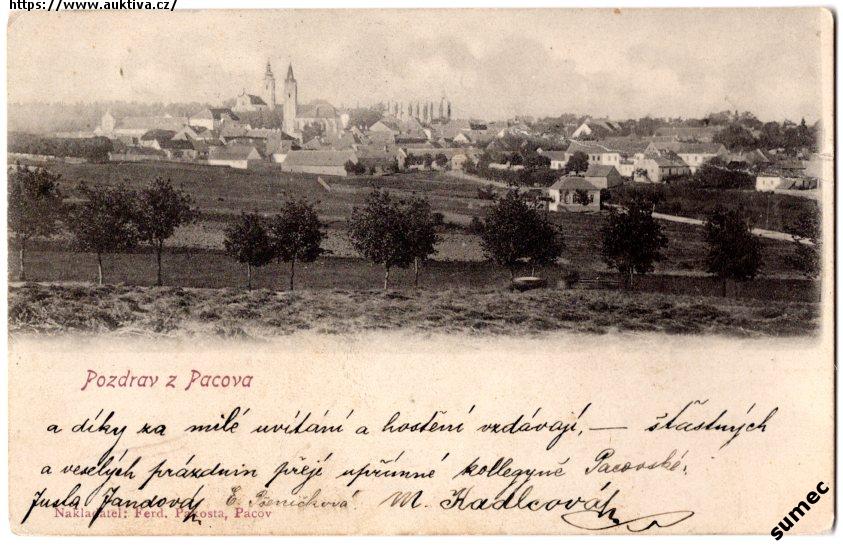 https://www.auktiva.cz/
Pozdrav z Pacova
a díky za milé uvítání a hostění vzdávají, — šťastných
a veselých prázdnin přejí upřímné kollegyně Pacovské.
Jandová, E. Pšeničková M. Kadlcová
Nakladatel: Ferd. Pakosta, Pacov
sumec